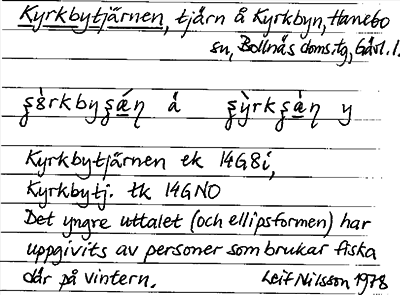 Kyrkbytjärnen, tjärn å Kyrkbyn, Hanebo
sn, Bollnäs doms.tg, Gävl. l.
ʂɞ̀rkbyʂǽn å ʂỳrkʂǽn y
Kyrkbytjärnen ek 14G8i,
Kyrkbytj. tk 14GNO
Det yngre uttalet (och ellipsformen) har
uppgivits av personer som brukar fiska
där på vintern. Leif Nilsson 1978